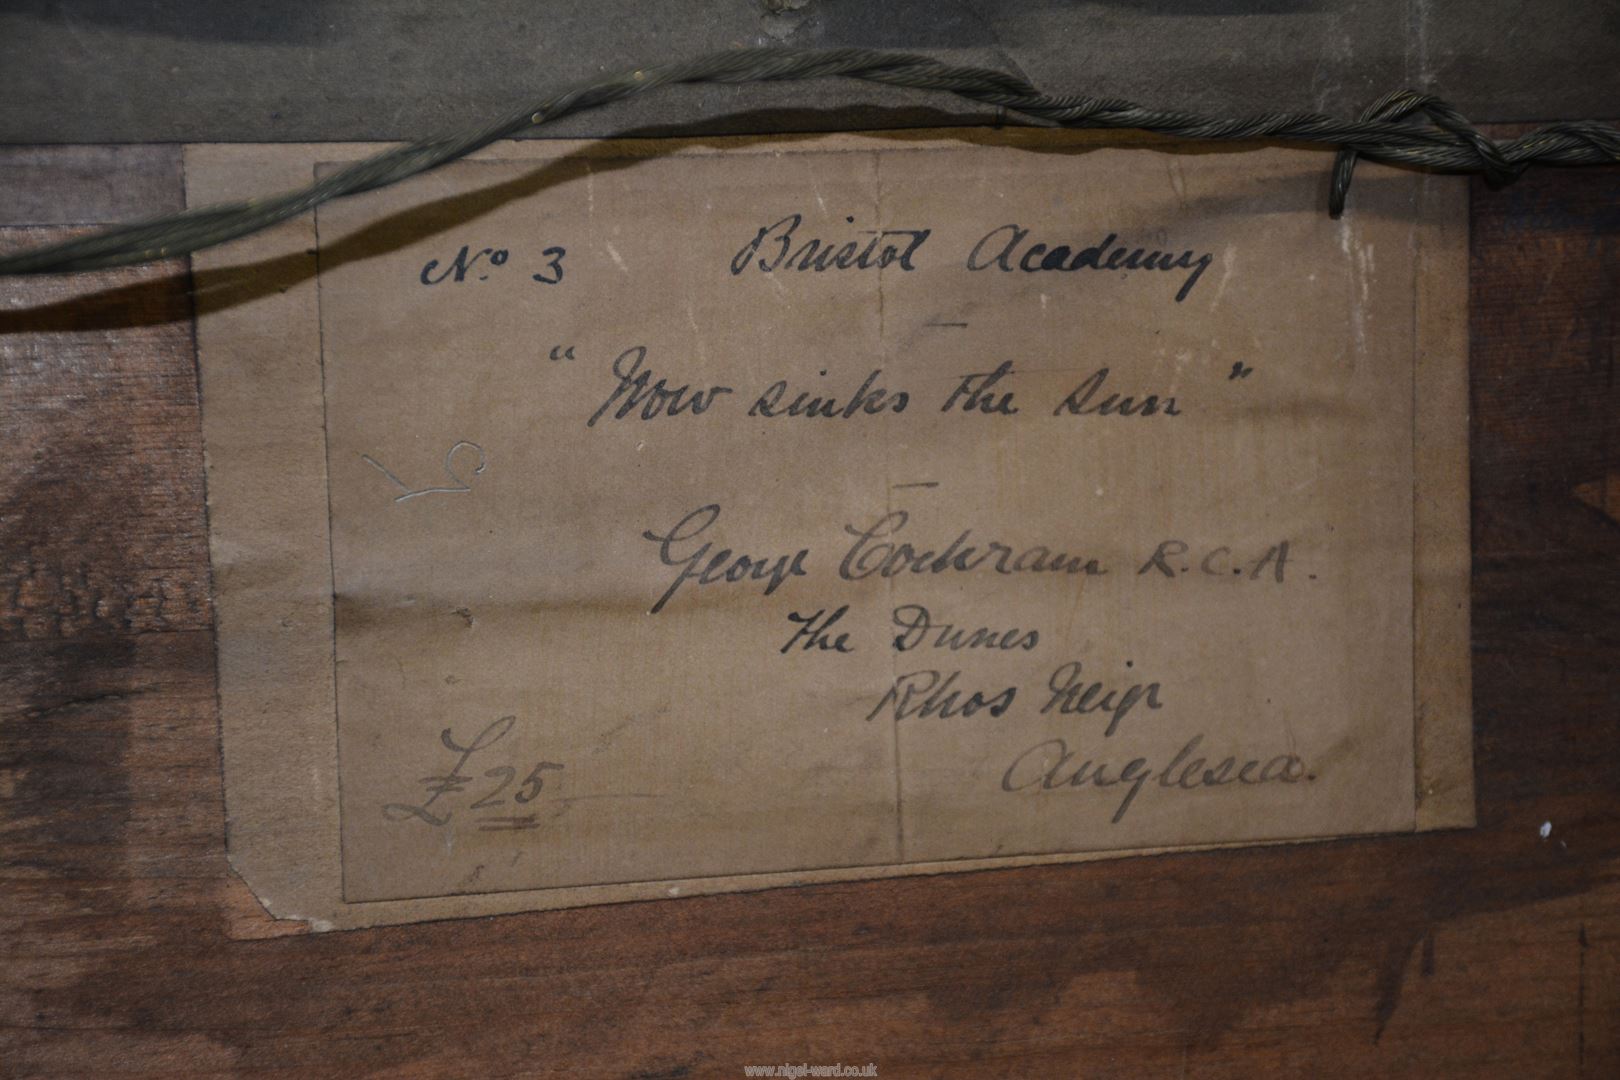 No. 3 Bristol Academy
"Now sinks the sun"
George Cockram R.C.A.
The Dunes
Rhos Neigr
Anglesea.
£25
www.nigel-ward.co.uk